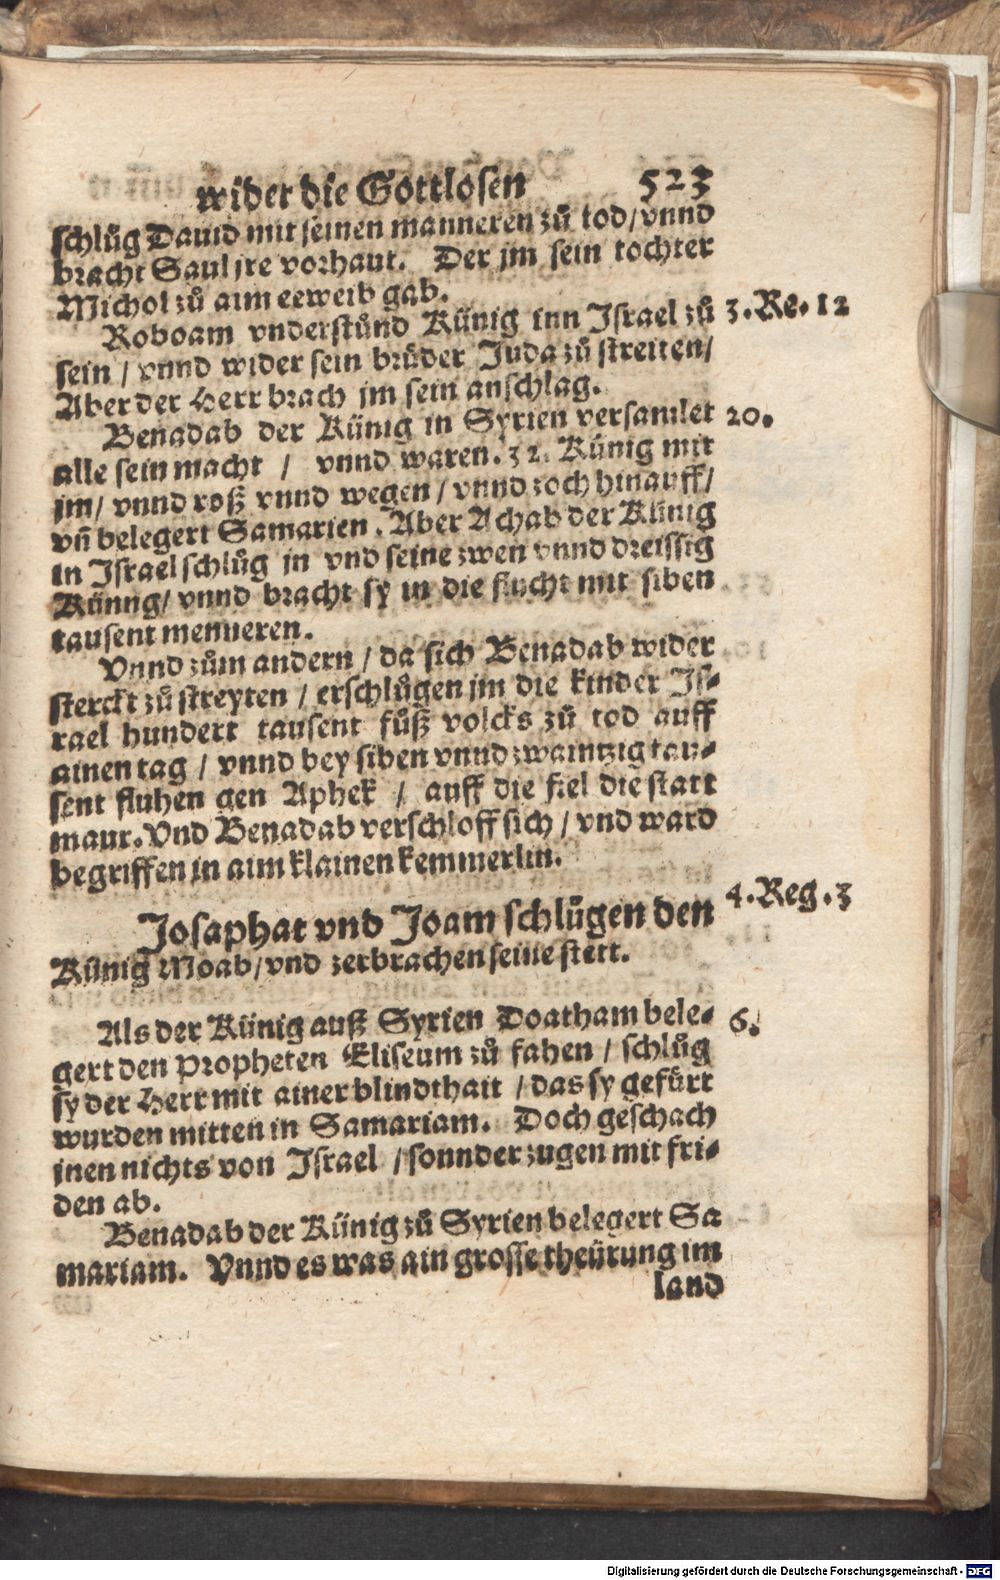 wider die Gottlosen 523
schlůg Dauid mit seinen manneren zů tod/ vnnd
bracht Saul jre vorhaut. Der jm sein tochter
Michol zů aim eeweib gab.
Roboam vnderstůnd Künig inn Israel zů 3. Re. 12
sein / vnnd wider sein brůder Juda zů streiten/
Aber der Herr brach jm sein anschlag.
Benadab der Künig in Syrien versamlet 20.
alle sein macht / vnnd waren. 32. Künig mit
jm/ vnnd roß vnnd wegen / vnnd zoch hinauff/
vñ belegert Samarien. Aber Achab der Künig
in Israel schlůg jn vnd seine zwen vnnd dreissig
Künng/ vnnd bracht sy in die flucht mit siben
tausent menneren.
Vnnd zům andern / da sich Benadab wider
sterckt zů streyten / erschlůgen jm die kinder Is-
rael hundert tausent fůß volcks zů tod auff
ainen tag / vnnd bey siben vnnd zwaintzig tau-
sent fluhen gen Aphek / auff die fiel die statt
maur. Vnd Benadab verschloff sich / vnd ward
begriffen in aim klainen kemmerlin.
Josaphat vnd Joam schlůgen den 4. Reg. 3
Künig Moab/ vnd zerbrachen seine stett.
Als der Künig auß Syrien Doatham bele- 6.
gert den Propheten Eliseum zů fahen / schlůg
sy der Herr mit ainer blindthait / das sy gefürt
wurden mitten in Samariam. Doch geschach
jnen nichts von Israel / sonnder zugen mit fri-
den ab.
Benadab der Künig zů Syrien belegert Sa
mariam. Vnnd es was ain grosse theürung im
land
Digitalisierung gefördert durch die Deutsche Forschungsgemeinschaft - DFG